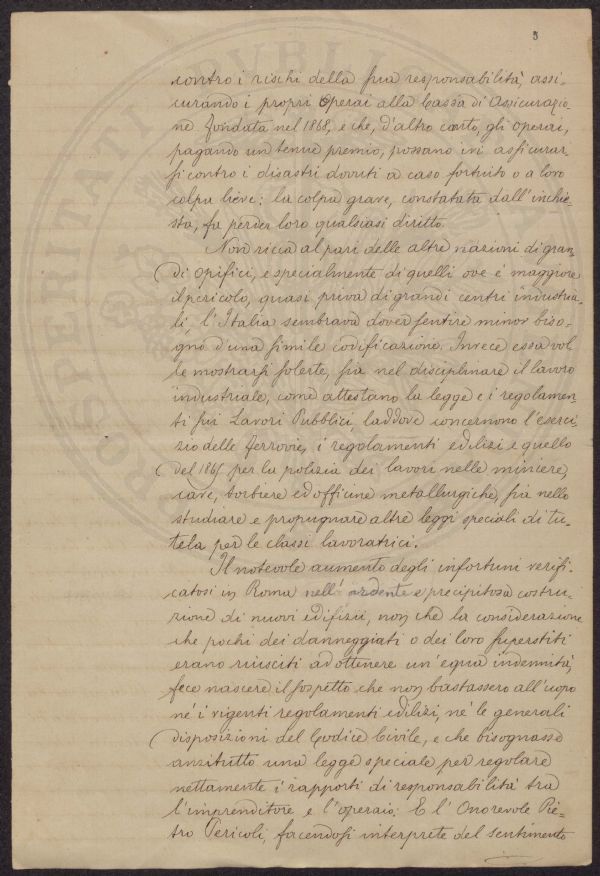 3
contro i rischi della sua responsabilità, assi-
curando i propri Operai alla Cassa di Assicurazio-
ne fondata nel 1868, e che, d'altro canto, gli Operai,
pagando un tenue premio, possano ivi assicurar-
si contro i disastri dovuti a caso fortuito o a loro
colpa lieve: la colpa grave, constatata dall'inchie-
sta, fa perder loro qualsiasi diritto.
Non ricca al pari delle altre nazioni di gran-
di Opifici, e specialmente di quelli ove è maggiore
il pericolo, quasi priva di grandi centri industria-
li, l'Italia sembrava dover sentire minor biso-
gno d'una simile codificazione. Invece essa vol-
le mostrarsi solerte, sia nel disciplinare il lavoro
industriale, come attestano la legge e i regolamen-
ti sui Lavori Pubblici, laddove concernono l'eserci-
zio delle Ferrovie, i regolamenti edilizi e quello
del 1865 per la polizia dei lavori nelle miniere,
cave, torbiere ed officine metallurgiche, sia nello
studiare e propugnare altre leggi speciali di tu-
tela per le classi lavoratrici.
Il notevole aumento degli infortuni verifi-
catosi in Roma nell'ardente e precipitosa costru-
zione di nuovi edifizii, non che la considerazione
che pochi dei danneggiati o dei loro superstiti
erano riusciti ad ottenere un'equa indennità,
fece nascere il sospetto che non bastassero all'uopo
nè i vigenti regolamenti edilizi, nè le generali
disposizioni del Codice Civile, e che bisognasse
anzitutto una legge speciale per regolare
nettamente i rapporti di responsabilità tra
l'imprenditore e l'operaio. E l'Onorevole Pie-
tro Pericoli, facendosi interprete del sentimento